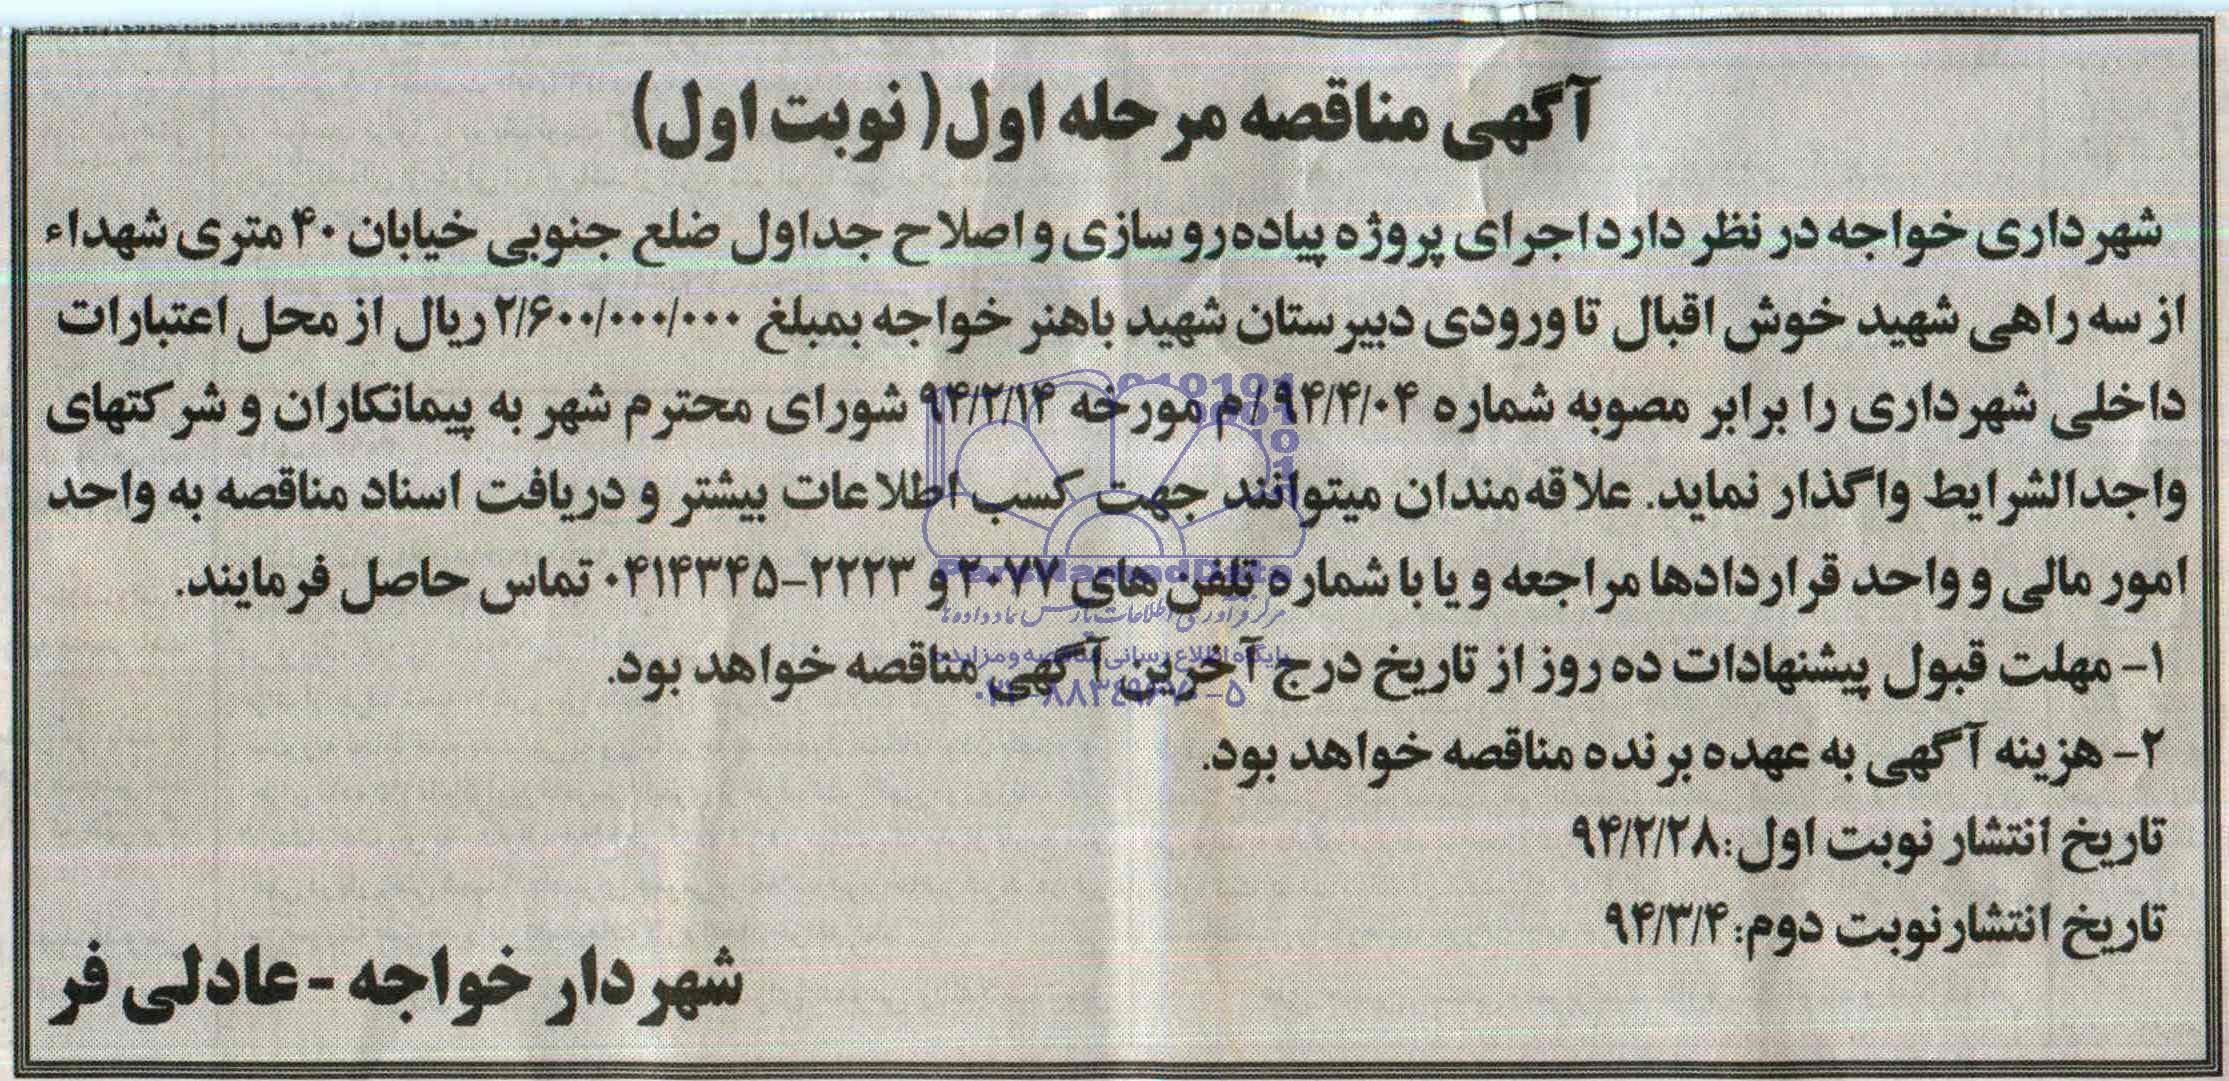 آگهی مناقصه مرحله اول( نوبت اول)
شهرداری خواجه در نظر دارد اجرای پروژه پیاده‌رو سازی و اصلاح جداول ضلع جنوبی خیابان ۴۰ متری شهداء
از سه راهی شهید خوش اقبال تا ورودی دبیرستان شهید باهنر خواجه بمبلغ ۲/۶۰۰/۰۰۰/۰۰۰ ریال از محل اعتبارات
داخلی شهرداری را برابر مصوبه شماره ۹۴/۴/۰۴/م مورخه ۹۴/۲/۱۴ شورای محترم شهر به پیمانکاران و شرکتهای
واجدالشرایط واگذار نماید. علاقه‌مندان میتوانند جهت کسب اطلاعات بیشتر و دریافت اسناد مناقصه به واحد
امور مالی و واحد قراردادها مراجعه و یا با شماره تلفن های ۲۰۷۷ و ۲۲۲۳-۰۴۱۴۳۴۵ تماس حاصل فرمایند.
۱- مهلت قبول پیشنهادات ده روز از تاریخ درج آخرین آگهی مناقصه خواهد بود.
۲- هزینه آگهی به عهده برنده مناقصه خواهد بود.
تاریخ انتشار نوبت اول:۹۴/۲/۲۸
تاریخ انتشار نوبت دوم:۹۴/۳/۴
شهردار خواجه - عادلی فر
مرکز فرآوری اطلاعات پارس نماد داده‌ها
پایگاه اطلاع رسانی مناقصه و مزایده